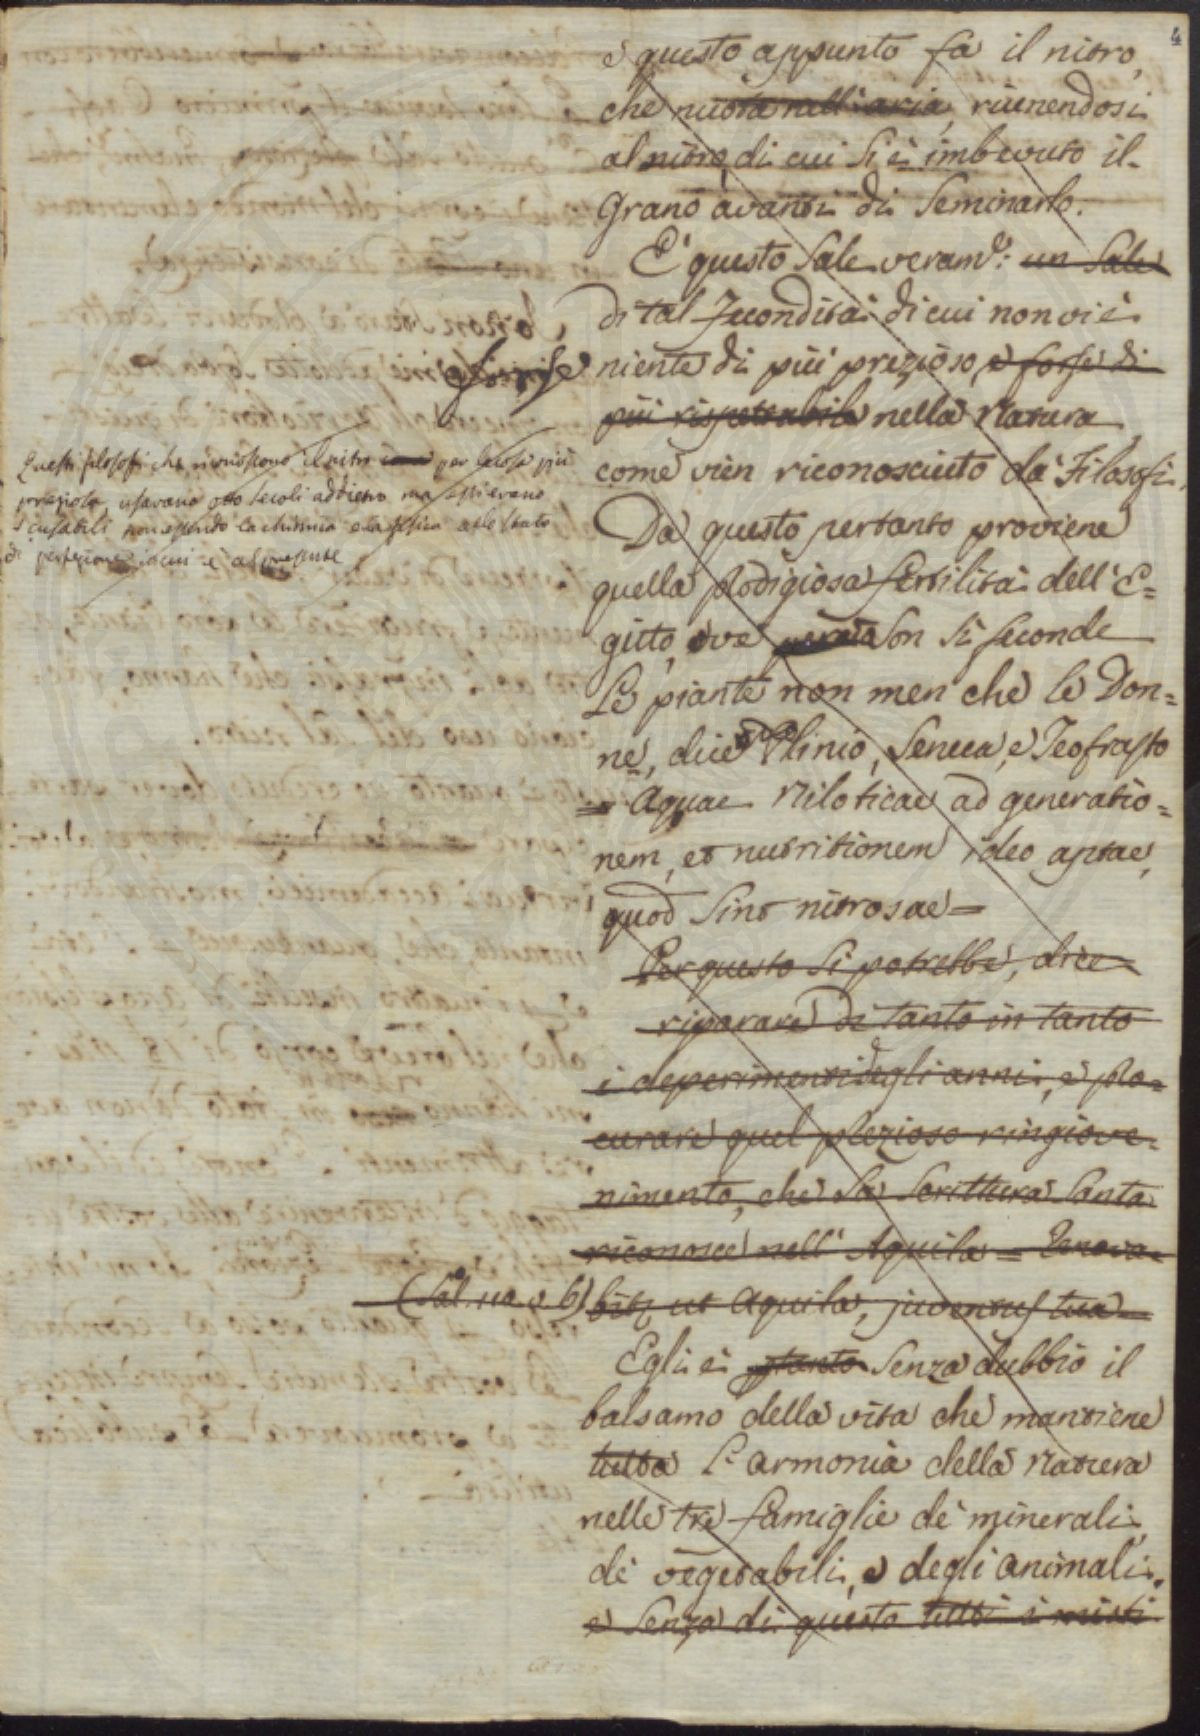 4
e questo appunto fa il nitro,
che nuota nell'aria, riunendosi
al nitro, di cui si è imbevuto il
Grano avanti di Seminarlo.
E' questo Sale veram.e: un Sale
di tal fecondità di cui non vi è
niente di più prezioso, e forse di
più rispettabile nella Natura
come vien riconosciuto da' Filosofi.
Questi filosofi che riconoscono il nitro per la cosa più
preziosa, usavano otto secoli addietro ma essi erano
scusabili non essendo la chimica e la fisica allo stato
di perfezione in cui è al presente
Da questo pertanto proviene
quella prodigiosa fertilità dell'E=
gitto, ove son sì feconde
le piante non men che le Don=
ne, dice Plinio, Seneca, e Teofrasto
= Aquae Niloticae ad generatio=
nem, et nutritionem ideo aptae,
quod sint nitrosae =
Per questo si potrebbe, dice
riparare di tanto in tanto
i deperimenti degli anni, e pro=
curare quel prezioso ringiove=
nimento, che la Scrittura Santa
riconosce nell' Aquila = Renova=
bitr ut Aquila, juventus tua =
Egli è senza dubbio il
balsamo della vita che mantiene
tutta l'armonia della Natura
nelle tre famiglie de' minerali,
de' vegetabili, e degli animali.
e senza di questo tutti i misti